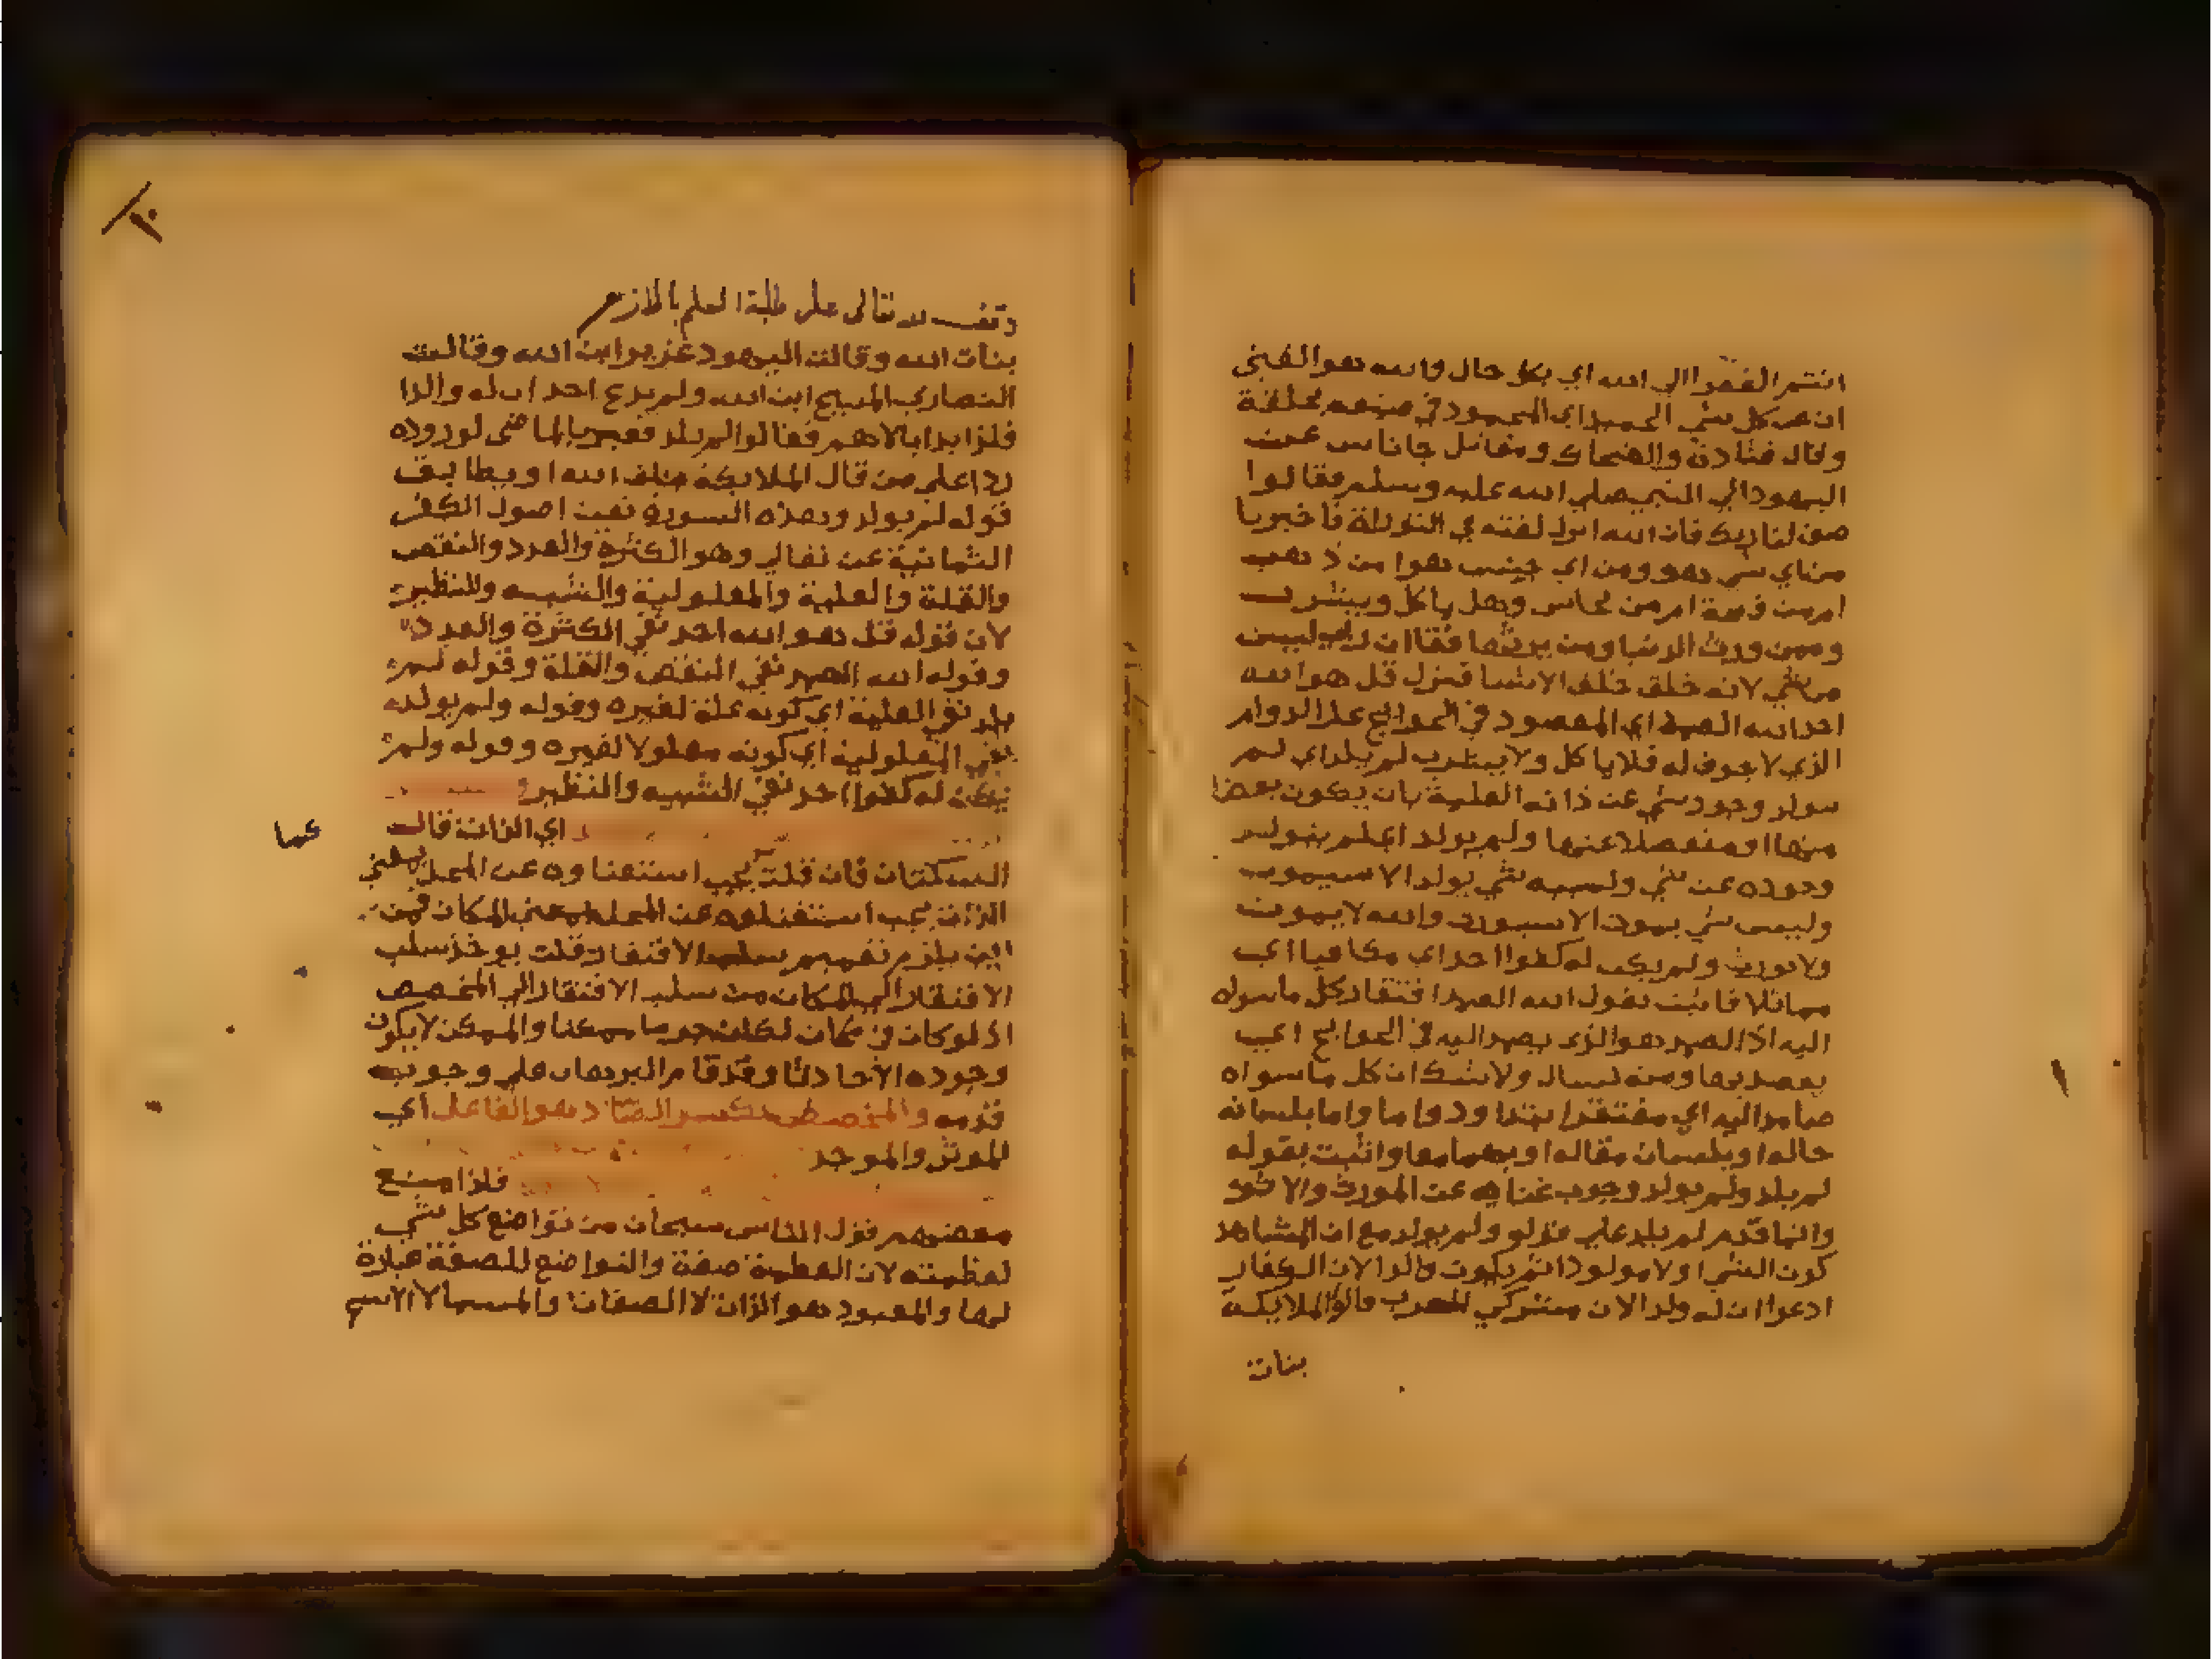 انتم الفقرا الي الله اي بكل حال والله هو الغني
ان عن كل شي الحميد اي المحمود في صنعه بخلقة
وقال قتادة والضحاك ومقاتل جا ناس من
اليهود الي النبي صلي الله عليه وسلم فقالوا
صف لنا ربك فان الله انزل نعته في التوراة فاخبرنا
من اي شي هو ومن اي جنس هوا من ذهب
ام من فضة ام من نحاس وهل ياكل ويشرب
وممن ورث الدنيا ومن يرثها فقال ان ربي ليس
من شي لانه خلق خلق الاشيا فنزل قل هو الله
احد الله الصمد اي المقصود في الحوايج علي الدوام
الذي لا جوف له فلا ياكل ولا يشرب لم يلد اي لم
يتولد وجود شي عن ذاته العلية بان يكون بعضا
منها او منفصلا عنها ولم يولد اي لم يتولد
وجوده عن شي وليس شي يولد الا سيموت
وليس شي يموت الا سيورث والله لا يموت
ولا يورث ولم يكن له كفوا احد اي مكافيا اي
مماثلا فاثبت بقول الله الصمد افتقار كل ما سواه
اليه اذ الصمد هو الذي يصمد اليه في الحوايج اي
يقصد بها ومنه تسال ولا شك ان كل ما سواه
صامد اليه اي مفتقرا ابتدا ودواما واما بلسانه
حاله او بلسان مقاله او بهما معا واثبت بقوله
لم يلد ولم يولد وجوب غناه عن المورث والاثر
وانما قدم لم يلد علي قوله ولم يولد مع ان المشاهد
كون الشي اولا مولودا ثم يكون والدا لان الكفار
ادعوا ان له ولدا لان مشركي العرب قالوا الملايكة
بنات
وقف لله تعالى على طلبة العلم بالازهر
بنات الله وقالت اليهود عزير ابن الله وقالت
النصاري المسيح ابن الله ولم يدع احد ان له والدا
فلذا بدا بالاهم فقالوا لم يلد فعبر بالماضي لوروده
ردا علي من قال الملايكة خلف الله او يطابق
قوله لم يولد وبهذه السورة نفيت اصول الكفر
الثمانية عن تعالي وهو الكثرة والعدد والنقص
والقلة والعلية والمعلولية والشبيه والنظير
لان قوله قل هو الله احد نفي الكثرة والعدد
وقوله الله الصمد نفي النقص والقلة وقوله لم
يلد نفي العلية اي كونه علة لغيره وقوله ولم يولد
نفي المعلولية اي كونه معلولا لغيره وقوله ولم
يكن له كفوا احد نفي الشبيه والنظير
اي الذات قال
السكتان فان قلت يجب استغناوه عن المحل يعني
الذات يجب استغناوه عن المحل بمعني المكان فمن
اين يلزم نفيهم سلب الافتقار قلت يوخذ سلب
الافتقار الي المكان من سلب الافتقار الي المخصص
اذ لو كان في مكان لكان جرما ممكنا والممكن لا يكون
وجوده الا حادثا وقد قام البرهان علي وجوب
قدمه والمخصص بكسر الصاد هو الفاعل اي
الموثر والموجد
فلذا منع
بعضهم قول الناس سبحان من تواضع كل شي
لعظمته لان العظمة صفة والتواضع للصفة عبادة
لها والمعبود هو الذات لا الصفات والمسما لا الاسم